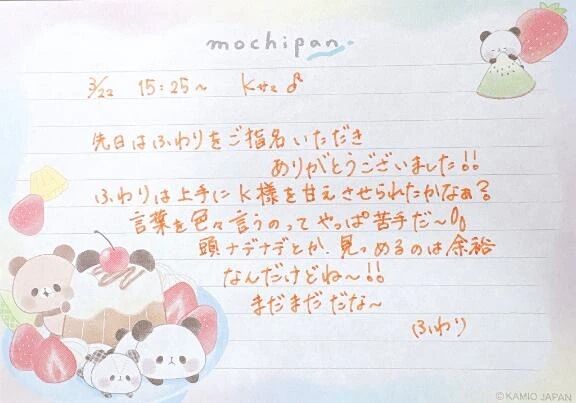 mochipan
3/22 15:25~ Kサマ♂
先日はふわりをご指名いただき
ありがとうございました!!
ふわりは上手にK様を甘えさせられたかなぁ?
言葉を色々言うのってやっぱ苦手だ~
頭ナデナデとか、見つめるのは余裕
なんだけどね~!!
まだまだだな~
ふわり
©KAMIO JAPAN